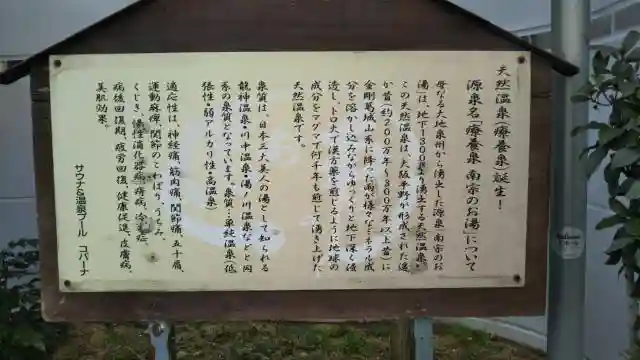 天然温泉「療養泉」誕生！
源泉名「療養泉 南宗のお湯」について
母なる大地泉州から湧出した源泉「南宗のお
湯」は、地下1300mより湧出する天然温泉・
この天然温泉は、大阪平野が形成された遙
か昔（約200万年〜300万年以上昔）に
金剛葛城山系に降った雨が様々なミネラル成
分を溶かし込みながらゆっくりと地下深く浸
透し、トロ火で漢方薬を煎じるように地球の
成分をマグマで何千年も煎じて湧き上げた
天然温泉です。
泉質は、日本三大美人の湯として知られる
龍神温泉・川中温泉・湯ノ川温泉などと同
系の泉質となっています。泉質：単純温泉（低
張性・弱アルカリ性・高温泉）
適応性は、神経痛、筋肉痛、関節痛、五十肩、
運動麻痺、関節のこわばり、うちみ、
くじき、慢性消化器病、痔病、冷え症、
病後回復期、疲労回復、健康促進、皮膚病、
美肌効果。
サウナ&温泉プール コパーナ